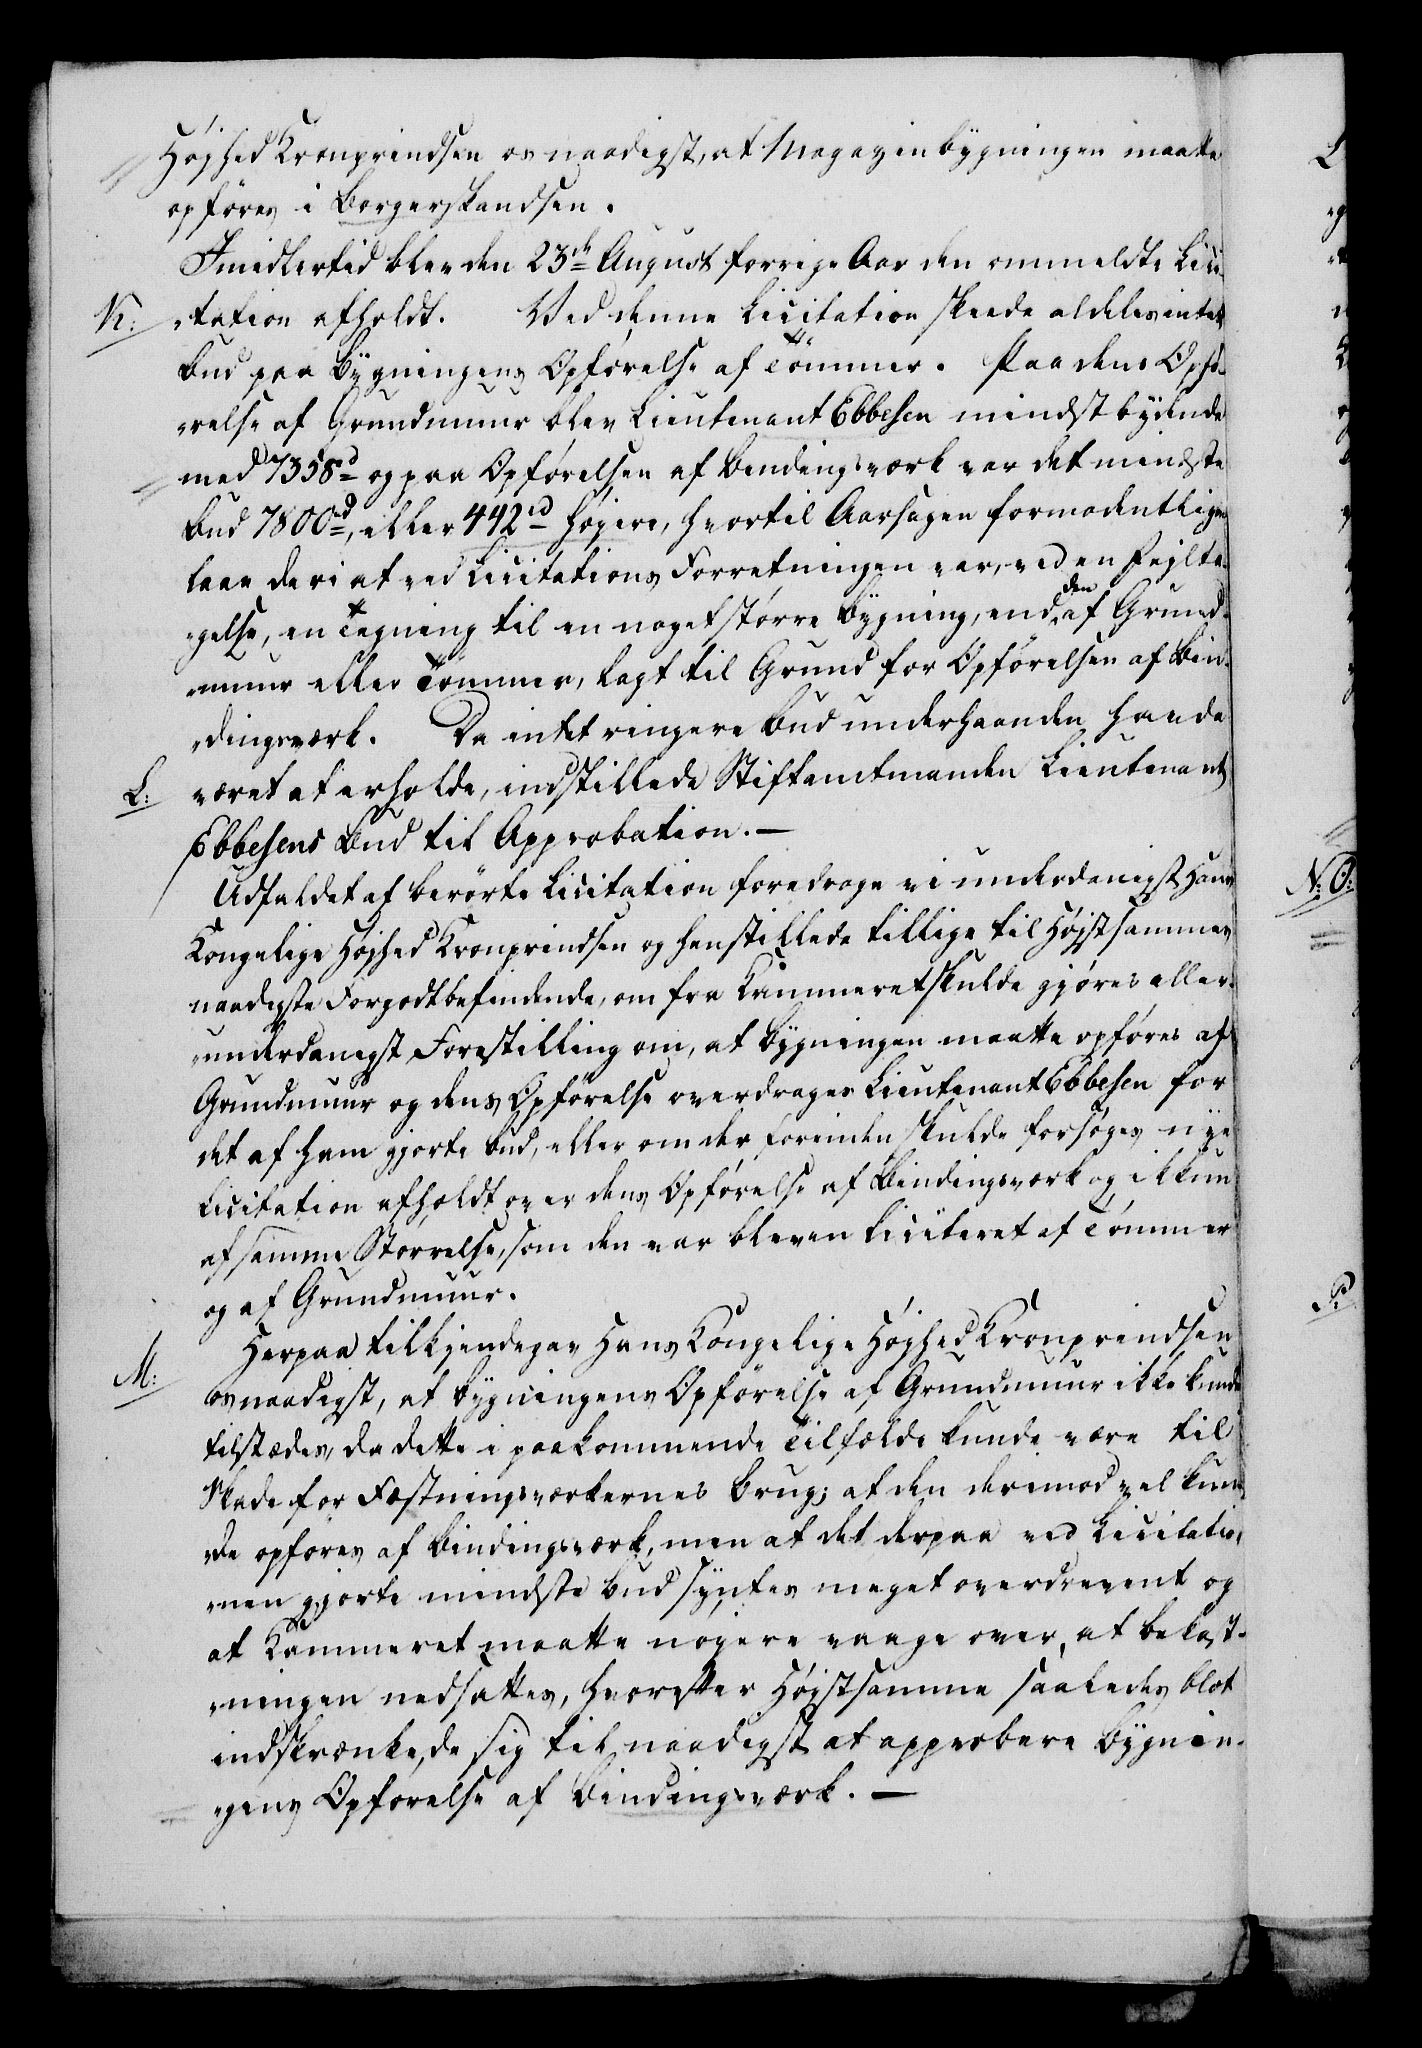 Højhed Kronprindsen os naadigst, at Magazinbygningen maatte
opføres i Borgerskandsen.
Imidlertid blev den 23de August forrige Aar den ommeldte Lici-
K: „tation afholdt. Ved denne Licitation skeede aldeles intet
Bud paa Bygningens Opførelse af Tömmer. Paa dens Opfø-
„relse af Grundmuur blev Lieutenant Ebbesen mindstbydende
med 7358rd og paa Opførelsen af Bindingsværk var det mindste
Bud 7800rd, eller 442rd høiere, hvortil Aarsagen formodentligen
laae deri at ved Licitations Forretningen var, ved en Fejlta-
„gelse, en Tegning til en noget større Bygning, end den af Grund-
„muur eller Tömmer, lagt til Grund for Opførelsen af Bin-
„dingsværk. Da intet ringere Bud underhaanden havde
L: været at erholde, indstillede Stiftamtmanden Lieutenant
Ebbesens Bud til Approbation. —
Udfaldet af berørte Licitation foredroge vi underdanigst Hans
Kongelige Højhed Kronprindsen og henstillede tillige til Højstsammes
naadigste Forgodtbefindende, om fra Kammeret skulde gjøres aller-
„underdanigst Forestilling om, at Bygningen maatte opføres af
Grundmuur og dens Opførelse overdrages Lieutenant Ebbesen for
det af ham gjorte Bud, eller om der forinden skulde forsøges nye
Licitation afholdt over dens Opførelse af Bindingsværk og ikkun
af samme Størrelse, som den var bleven liciteret af Tömmer
og af Grundmuur.
M: Herpaa tilkjendegav Hans Kongelige Højhed Kronprindsen
os naadigst, at Bygningens Opførelse af Grundmuur ikke kunde
tilstædes, da dette i paakommende Tilfælde kunde være til
Skade for Fæstningsværkernes Brug; at den derimod vel kun-
„de opføres af Bindingsværk, men at det derpaa ved Licitatio-
„nen gjorte mindste Bud syntes meget overdrevent og
at Kammeret maatte nøjere vaage over, at Bekost-
„ningen nedsattes, hvorefter Højstsamme saaledes blot
indskrænkede sig til naadigst at approbere Bygnin-
„gens Opførelse af Bindingsværk. —
N: O:
P: